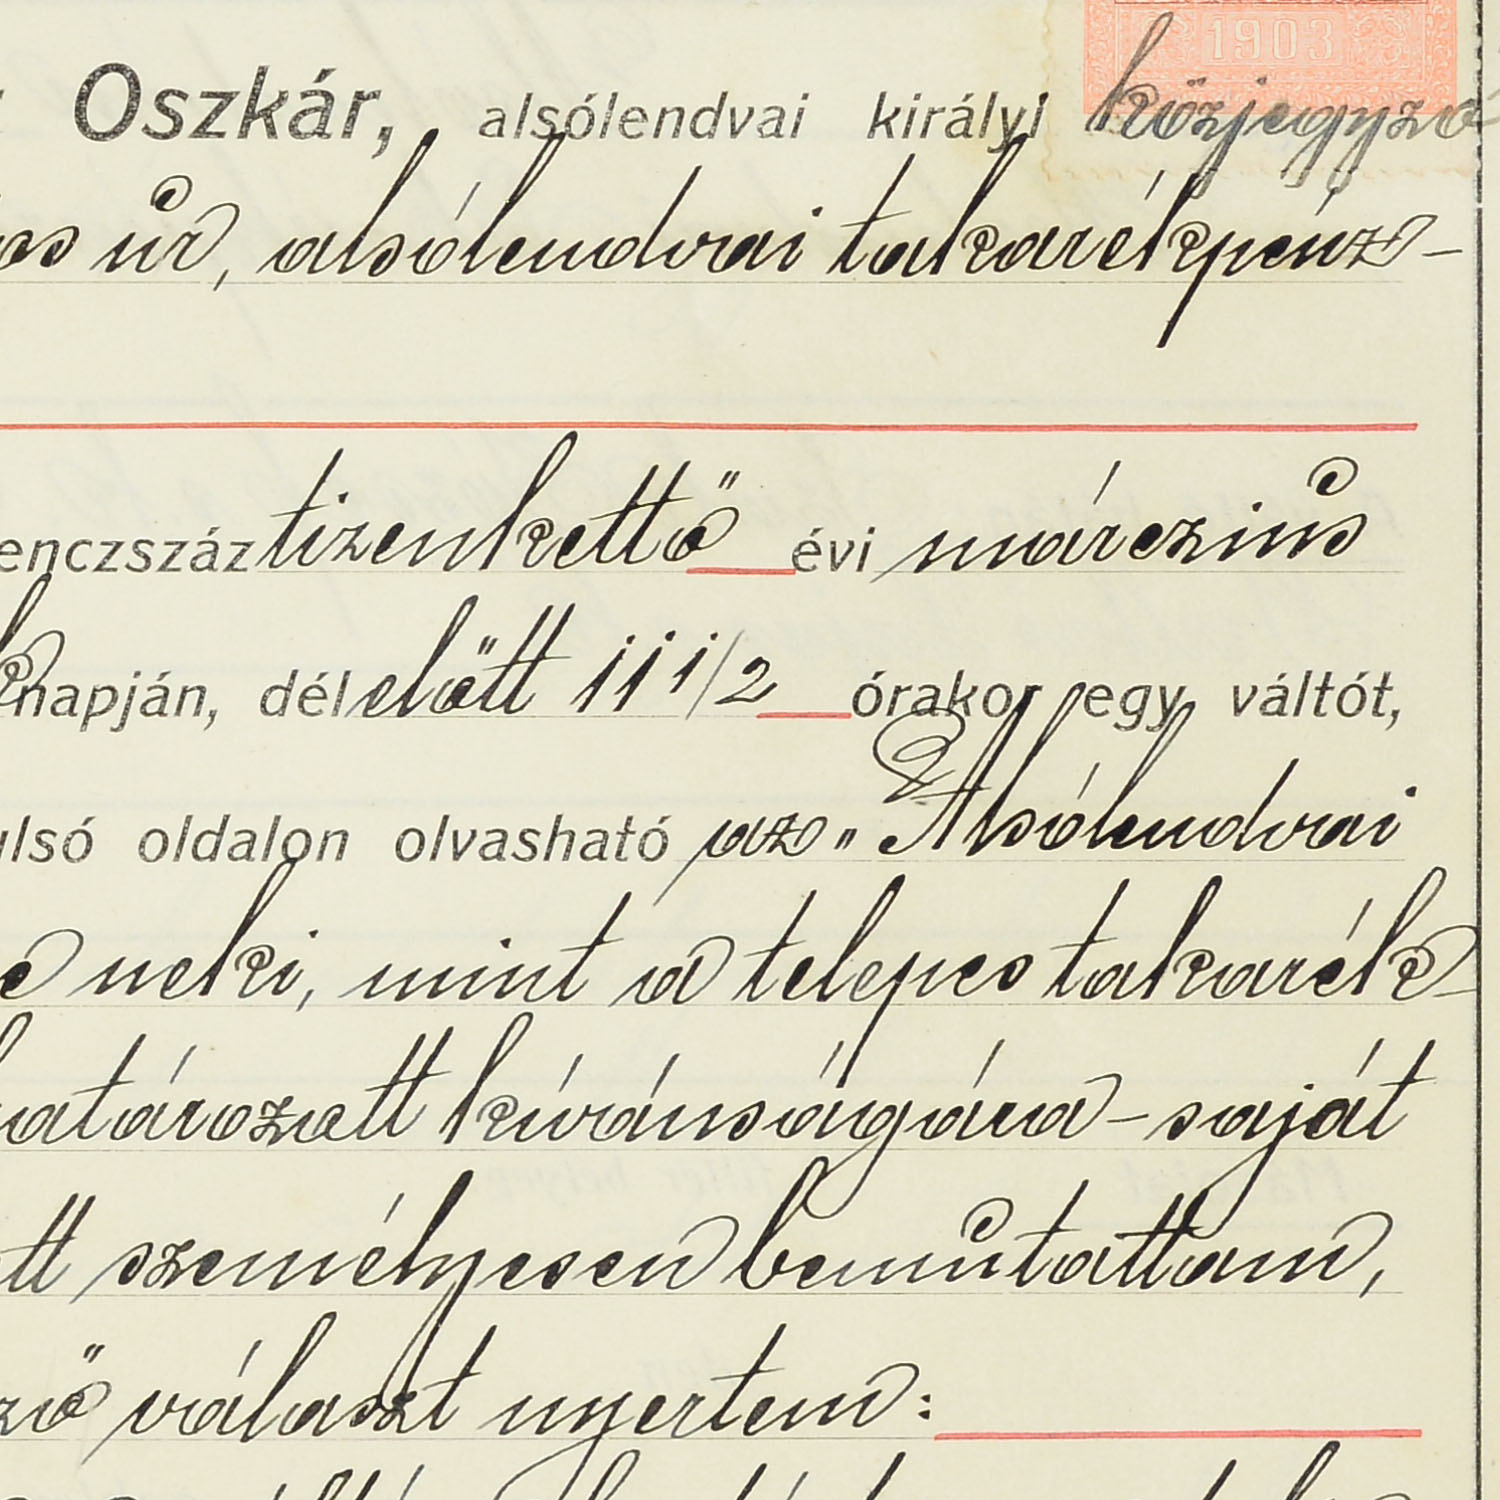 1903
Oszkár, alsólendvai királyi közjegyző
úr, alsólendvai takarékpénz-
enczszáz tizenkettő évi márczius
napján, délelőtt 11 1/2 órakor egy váltót,
ulsó oldalon olvasható az „Alsólendvai
neki, mint a telepes takarék-
határozott kívánságára - saját
tt személyesen bemutattam,
ző választ nyertem: